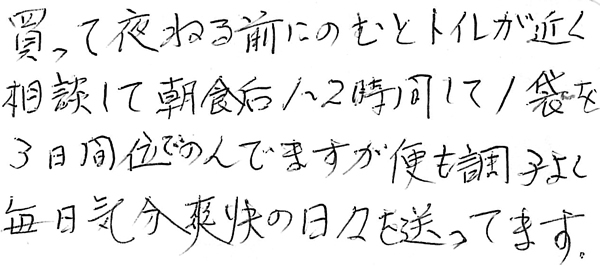 買って夜ねる前にのむとトイレが近く
相談して朝食后1~2時間して1袋を
3日間位でのんでますが便も調子よく
毎日気分爽快の日々を送ってます。